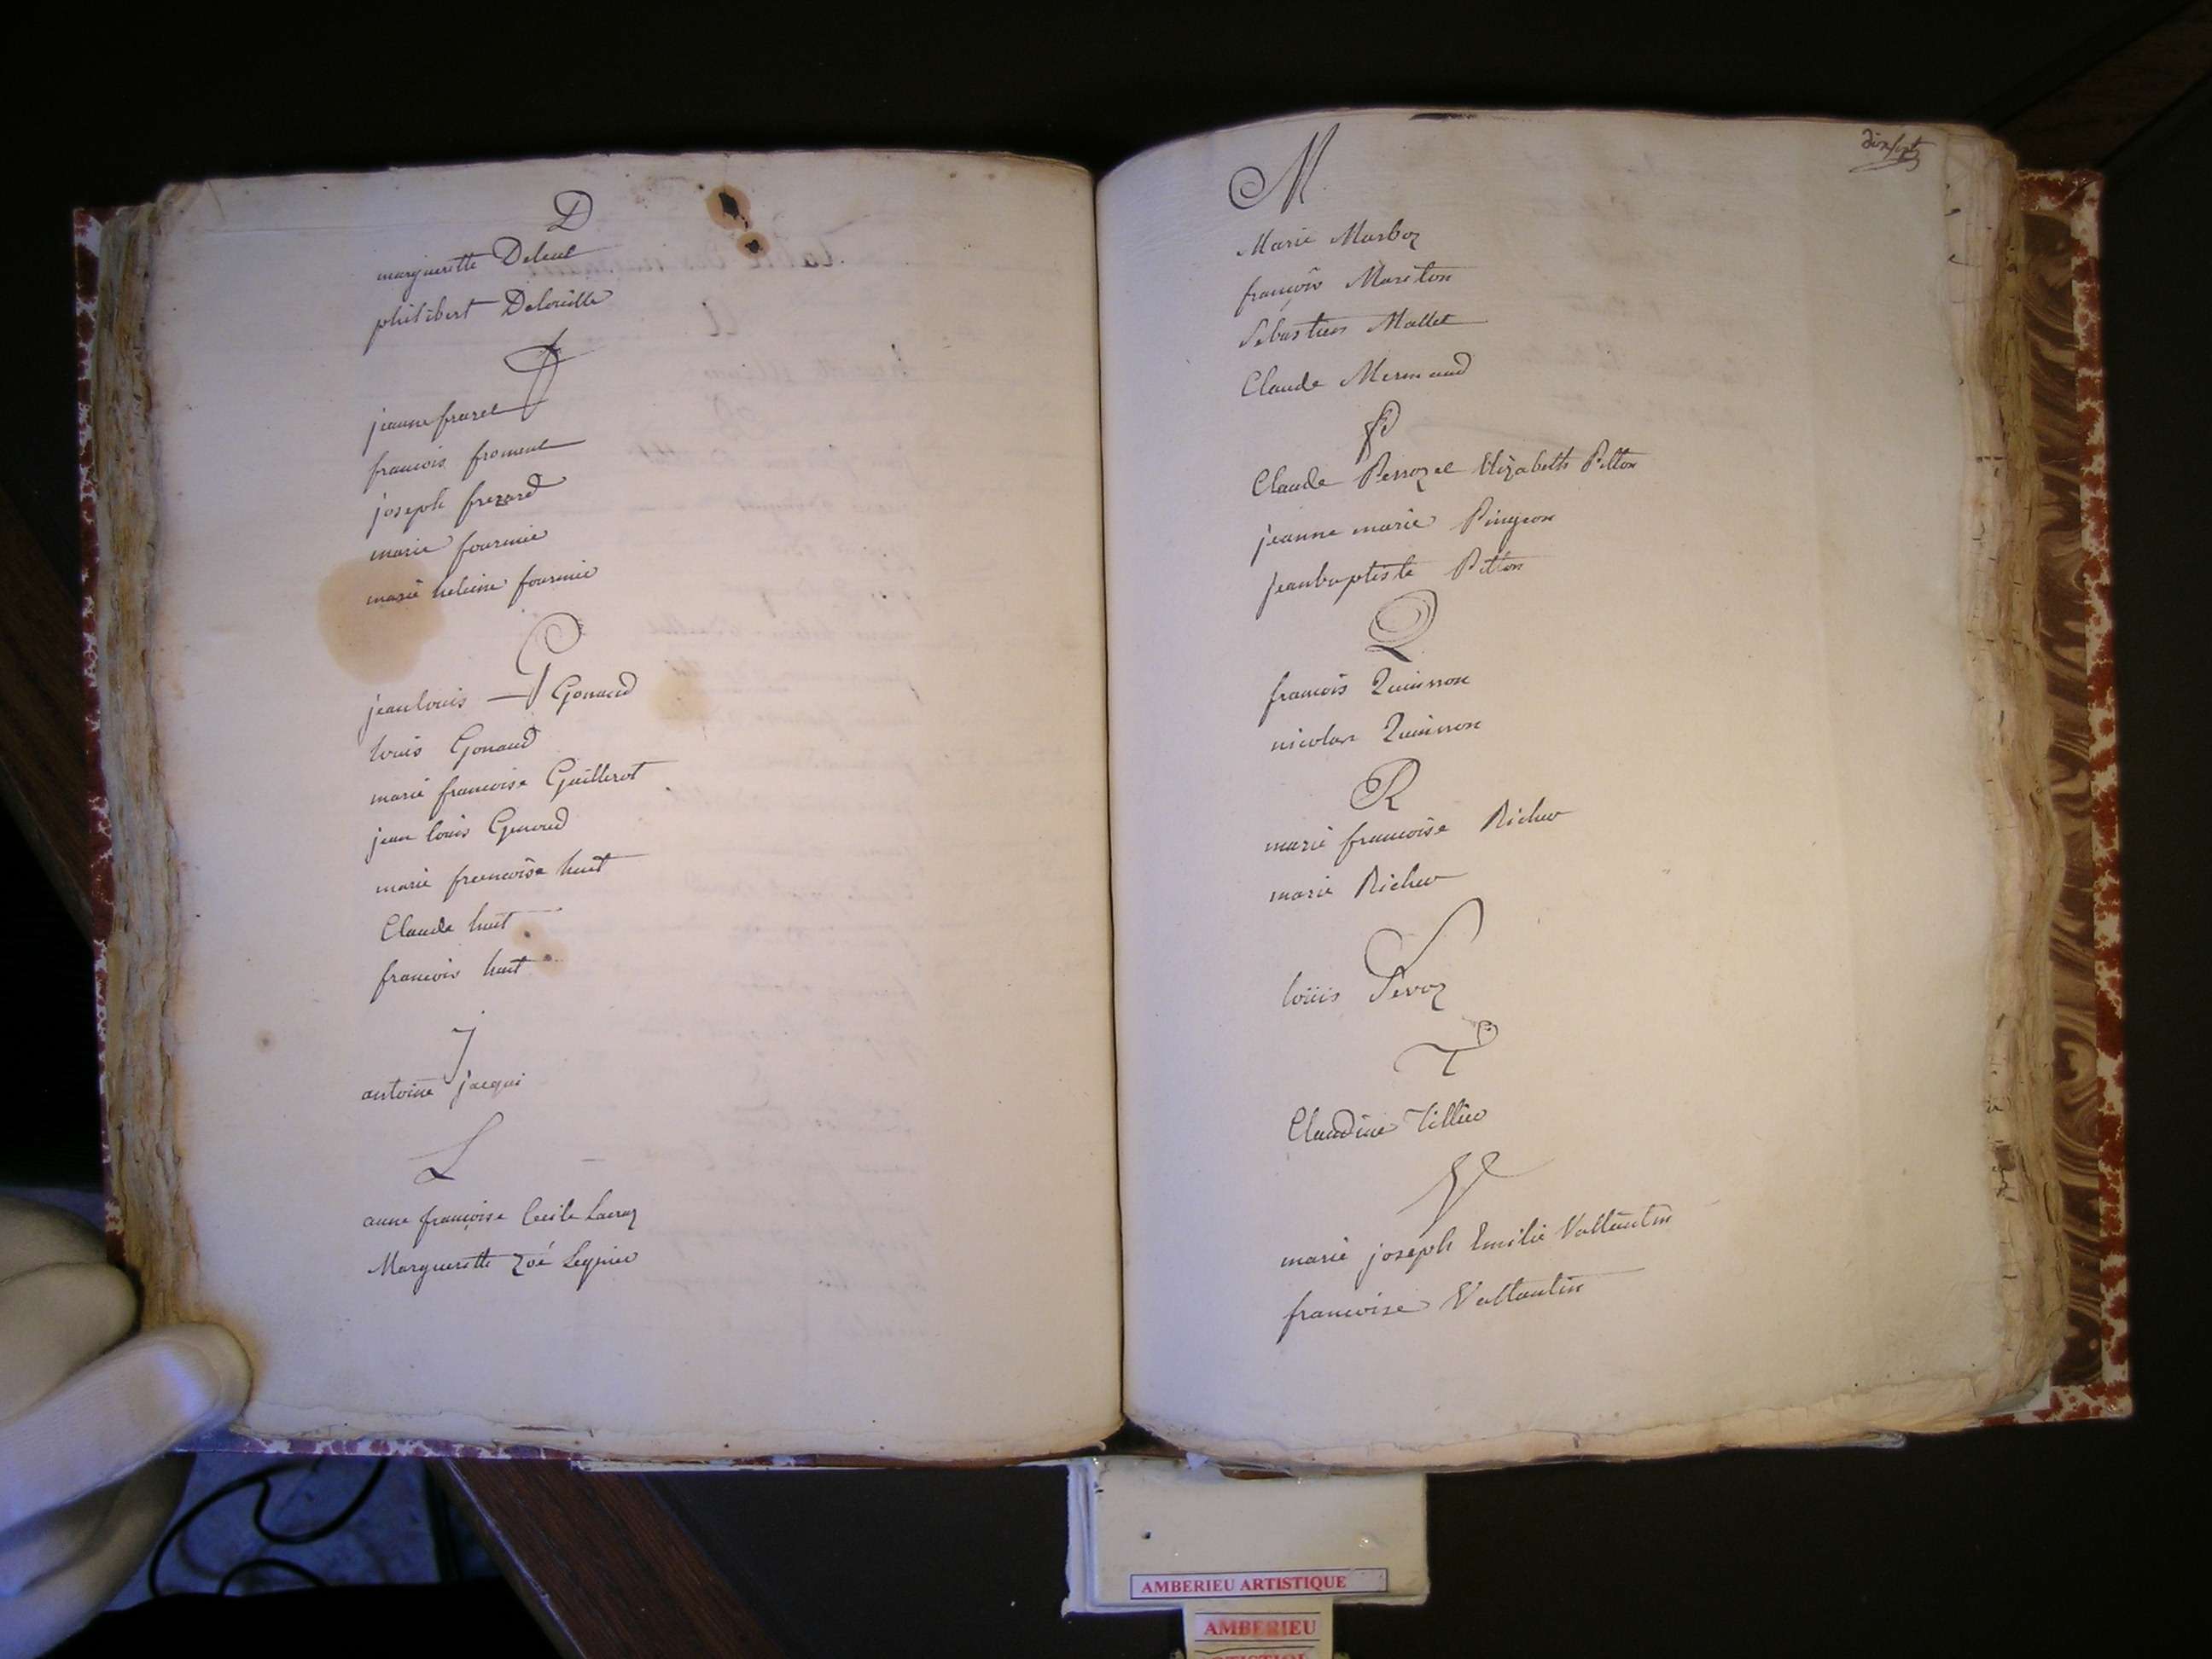 D
margueritte Deleul
philibert Delorielle
F
jeanne frarel
francois froment
joseph frezard
marie fournié
marie heleine fournié
G
jean louis Gonaud
louis Gonaud
marie francoise Guillerot
jean louis Genoud
marie francoise huit
Claude huit
francois huit
j
antoine jacqui
L
anne françoise Cecile Lacroz
Marguerette Zoé Legnier
dix sept
M
Marie Marboz
françois Mariton
Sebastien Mallet
Claude Mermand
P
Claude Perrozel Elizabeth Pitton
jeanne marie Pingeon
jean baptiste Pitton
Q
francois Quinson
nicolas Quinson
R
marie francoise Richer
marie Richer
S
loüis Sevoz
T
Claudine Tillier
V
marie joseph Emilie Vallentin
francoise Vallantin
AMBERIEU ARTISTIQUE
AMBERIEU
ARTISTIQUE